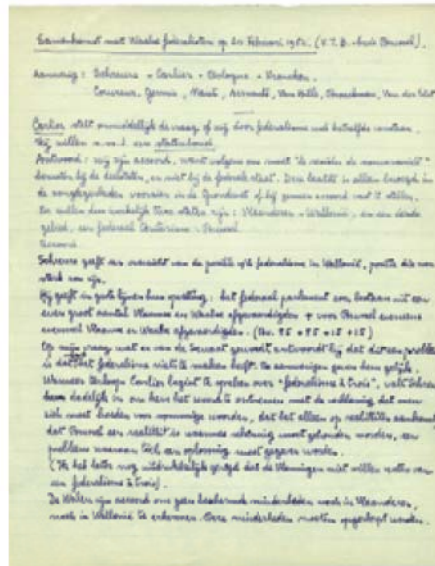 Samenkomst met Waalse federalisten op 20 Februari 1952. (V.T.B.-huis Brussel).
Aanwezig: Schreurs - Carlier - Bologne - Vrancken.
Couvreur, Germis, Van Hille, Van der Elst
Carlier stelt onmiddellijk de vraag of wij door federalisme ook hetzelfde verstaan.
Zij willen n.m.l. een statenbond
Antwoord: wij zijn accoord, want volgens ons moet "de
berusten bij de deelstaten, en niet bij de federale staat. Deze laatste is alleen bevoegd in
de aangelegenheden voorzien in de Grondwet of bij gemeen accoord vast te stellen.
Er zullen dus werkelijk twee staten zijn: Vlaanderen - Wallonië, en een derde
gebied, een federaal Brussel
Accoord
Schreurs geeft een overzicht van de positie v/h federalisme in Wallonië, positie die
sterk zou zijn.
Hij geeft in grote lijnen hun opvatting: het federaal parlement zou bestaan uit een
even groot aantal Vlaamse en Waalse afgevaardigden + voor Brussel eveneens
evenveel Vlaamse en Waalse afgevaardigden. (
Op mijn vraag wat er van de Senaat geworden antwoordt hij dat dit een probleem
is dat met het federalisme niets te maken heeft. De aanwezigen geven hem gelijk.
Wanneer Carlier begint te spreken over "fédéralisme à trois", valt Schreurs
hem dadelijk in
zich moet hoeden voor sommige woorden, dat het alleen op realiteiten aankomt,
dat Brussel een realiteit is waarmee rekening moet gehouden worden, een
probleem waaraan toch een oplossing moet gegeven worden.
(Ik heb later nog uitdrukkelijk gezegd dat de Vlamingen niet willen weten van
een fédéralisme à trois).
De Walen zijn accoord om geen beschermde minderheden noch in Vlaanderen,
noch in Wallonië te erkennen. Deze minderheden moeten opgeslorpt worden.